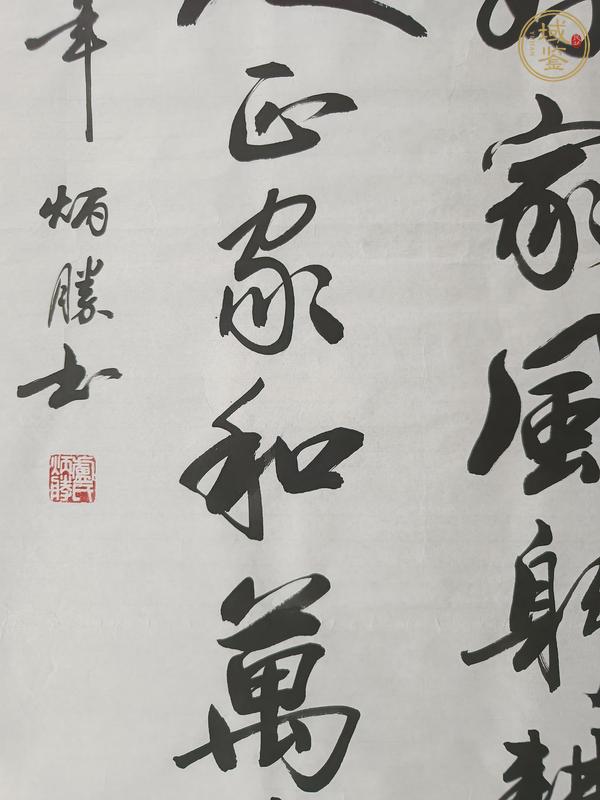 家風躬耕
正家和萬
年炳勝书
盧氏炳勝
域鉴